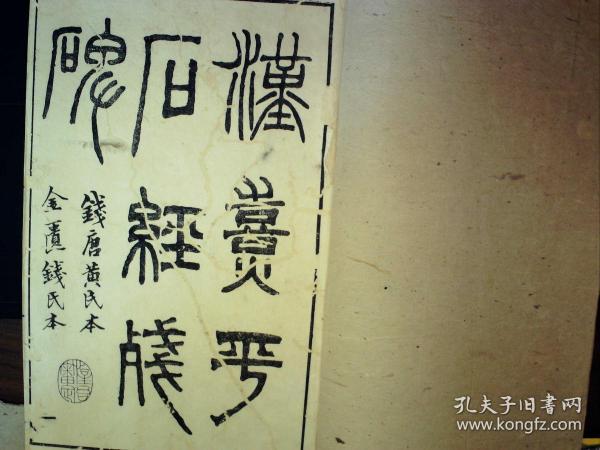 漢熹平
石經殘
碑
錢唐黃氏本
金匱錢氏本
一
孔夫子旧书网
www.kongfz.com